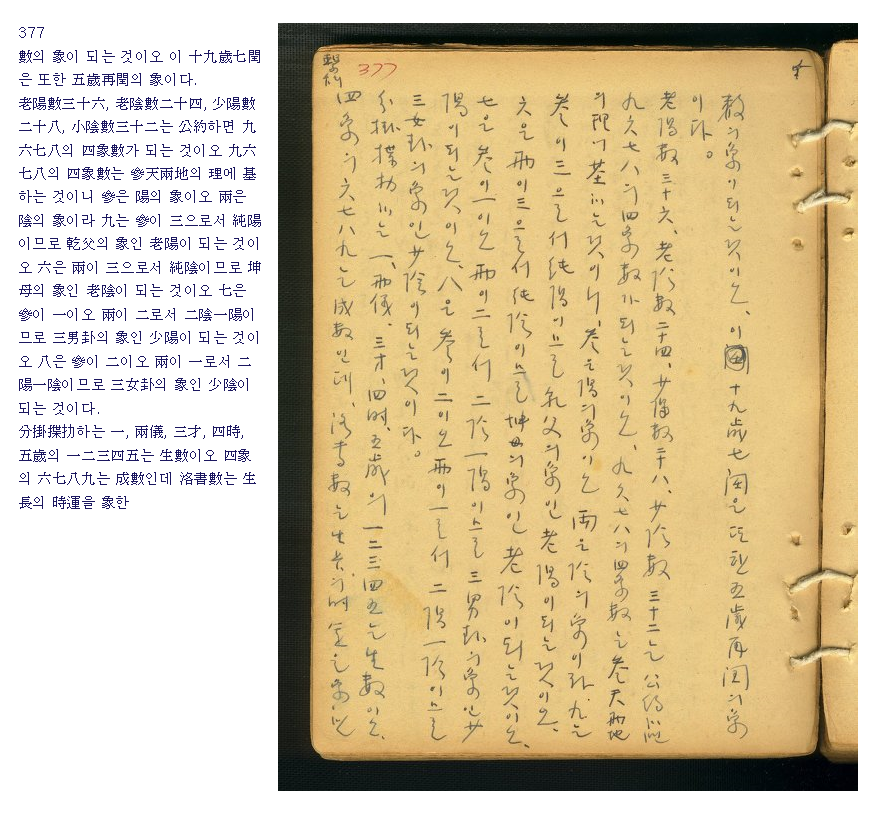 377
數의 象이 되는 것이오 이 十九歲七閏
은 또한 五歲再閏의 象이다.
老陽數三十六, 老陰數二十四, 少陽數
二十八, 小陰數三十二는 公約하면 九
六七八의 四象數가 되는 것이오 九六
七八의 四象數는 參天兩地의 理에 基
하는 것이니 參은 陽의 象이오 兩은
陰의 象이라 九는 參이 三으로서 純陽
이므로 乾父의 象인 老陽이 되는 것이
오 六은 兩이 三으로서 純陰이므로 坤
母의 象인 老陰이 되는 것이오 七은
參이 一이오 兩이 二로서 二陰一陽이
므로 三男卦의 象인 少陽이 되는 것이
오 八은 參이 二이오 兩이 一로서 二
陽一陰이므로 三女卦의 象인 少陰이
되는 것이다.
分掛揲扐하는 一, 兩儀, 三才, 四時,
五歲의 一二三四五는 生數이오 四象
의 六七八九는 成數인데 洛書數는 生
長의 時運을 象한
377
數의象이되는것이오、이 十九歲七閏은 또한 五歲再閏의象
이다。
老陽數 三十六、老陰數 二十四、少陽數 二十八、少陰數 三十二는 公約하면
九六七八의 四象數가 되는것이오、九六七八의 四象數는 參天兩地
의理에 基하는것이니、參은陽의象이오 兩은陰의象이라、九는
參이三으로서 純陽이므로 乾父의象인 老陽이되는것이오、
六은 兩이三으로서 純陰이므로 坤母의象인 老陰이되는것이오、
七은 參이一이오 兩이二로서 二陰一陽이므로 三男卦의象인少
陽이되는것이오、八은 參이二이오 兩이一로서 二陽一陰이므로
三女卦의象인 少陰이되는것이다。
分掛揲扐하는 一、兩儀、三才、四時、五歲의 一二三四五는 生數이오、
四象의 六七八九는 成數인데、洛書數는 生長의時運을象한